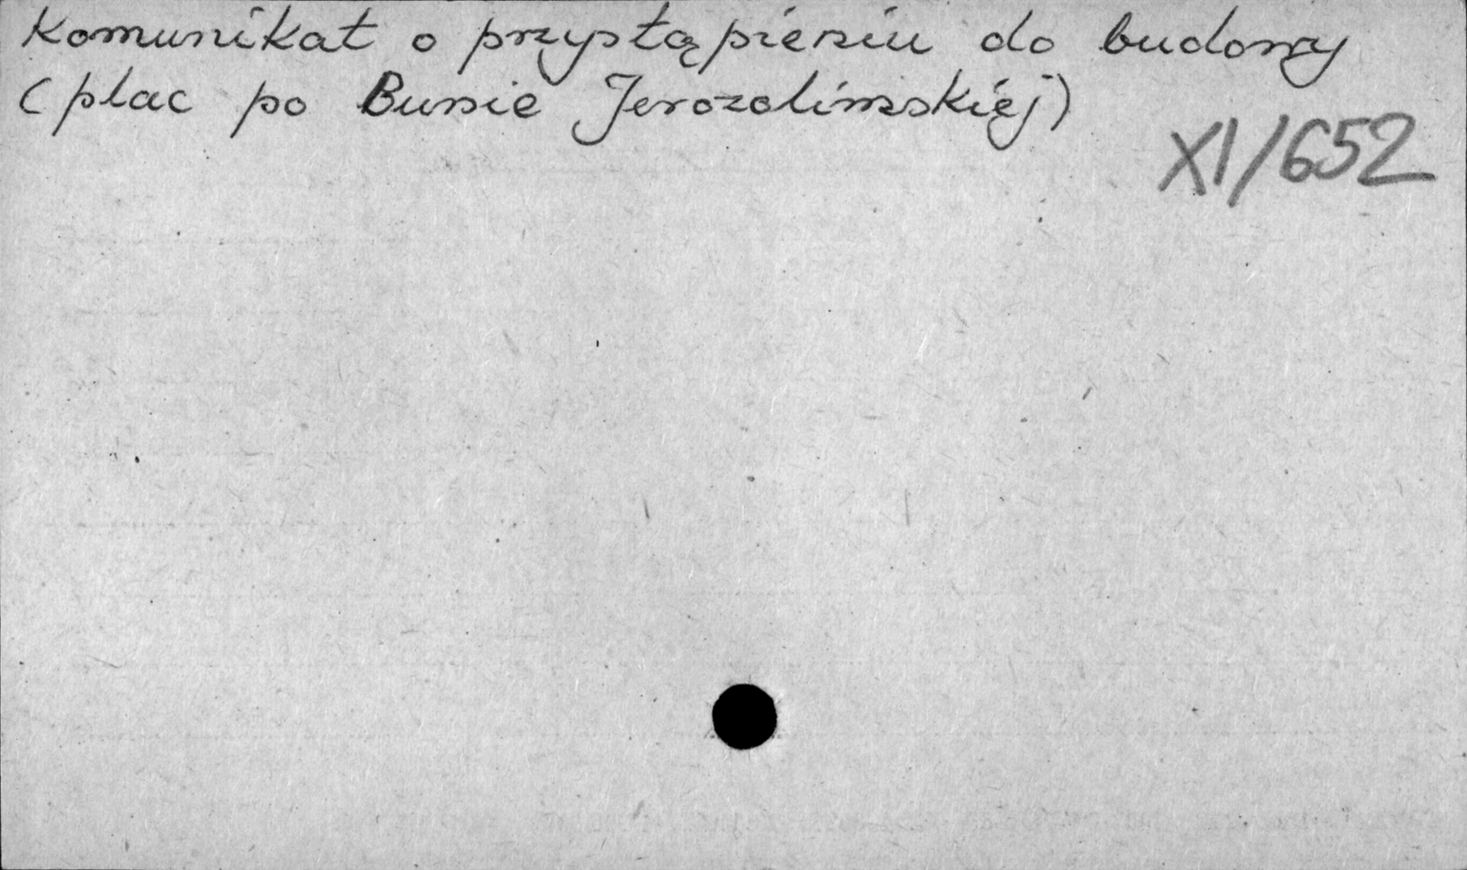 Komunikat o przystąpieniu do budowy
(plac po Bursie Jerozolimskiej)
XI/652